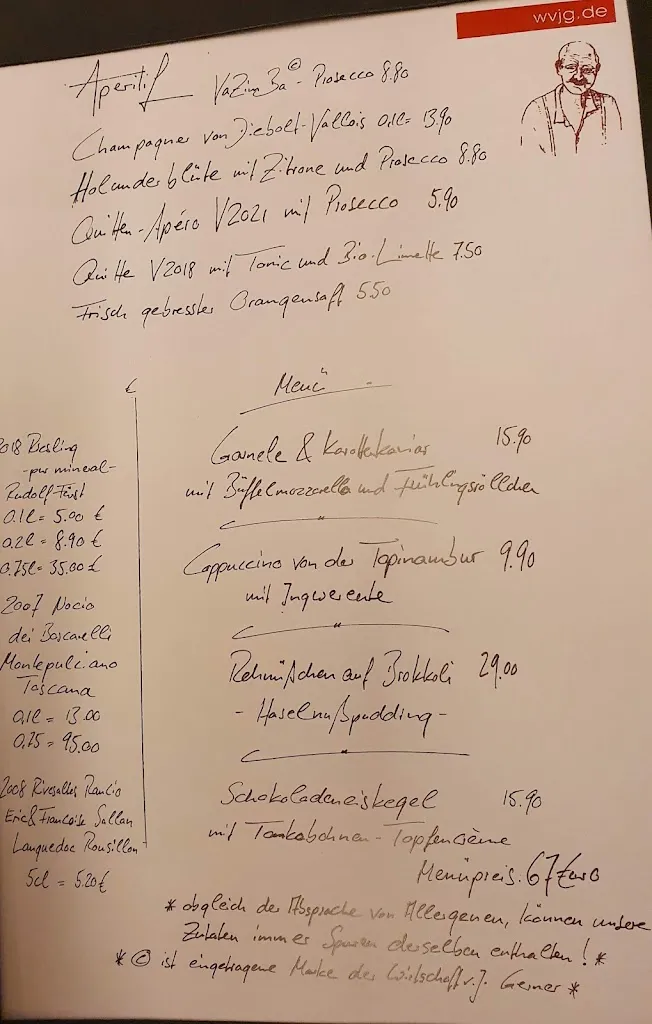 wvjg.de
Aperitif VaZimBa© - Prosecco 8.80
Champagner von Diebolt-Vallois 0,1l= 13.90
Holunderblüte mit Zitrone und Prosecco 8.80
Quitten-Apéro V2021 mit Prosecco 5.90
Quitte V2018 mit Tonic und Bio-Limette 7.50
Frisch gepresster Orangensaft 5.50
Menü
Garnele & Karottenkaviar 15.90
mit Büffelmozzarella und Frühlingsröllchen
Cappuccino von der Topinambur 9.90
mit Ingwerente
Rehnüßchen auf Brokkoli 29.00
- Haselnußpudding -
Schokoladeneiskegel 15.90
mit Tonkabohnen-Topfencrème
Menüpreis 67 Euro
2018 Riesling
- pur mineral -
Rudolf Fürst
0.1l = 5.00 €
0.2l = 8.90 €
0.75l = 35.00 €
2007 Nocio
dei Boscarelli
Montepulciano
Toscana
0,1l = 13.00
0,75 = 95.00
2008 Rivesaltes Rancio
Eric & Francoise Sallan
Languedoc Rousillon
5cl = 5.20 €
* obgleich der Absprache von Allergenen, können unsere
Zutaten immer Spuren derselben enthalten! *
* © ist eingetragene Marke der Wirtschaft v. J. Gerner *